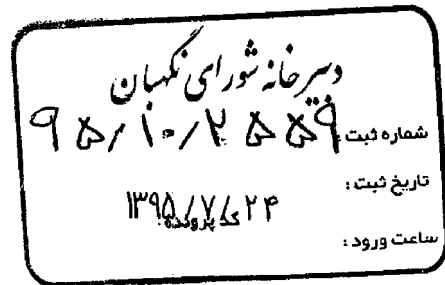 دبیرخانه شورای نگهبان
شماره ثبت: ۹۵/۱۰/۲۵۵۹
تاریخ ثبت:
۱۳۹۵/۷/۲۴
کد پرونده:
ساعت ورود: